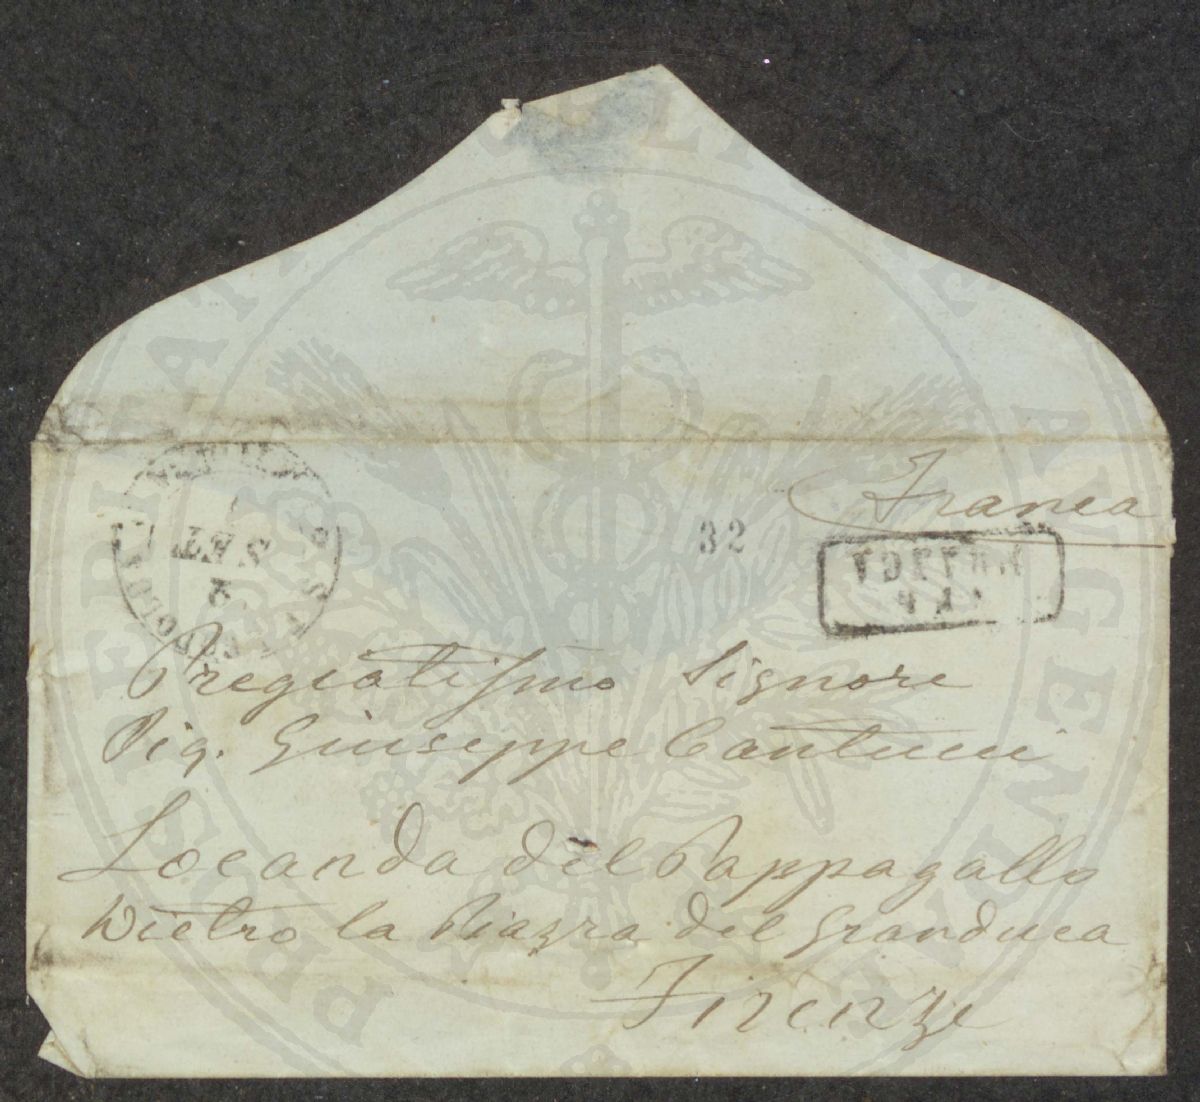 Franca
32
2
SET
Pregiatissimo Signore
Sig. Giuseppe Cantucci
Locanda del Pappagallo
Dietro la Piazza del Granduca
Firenze